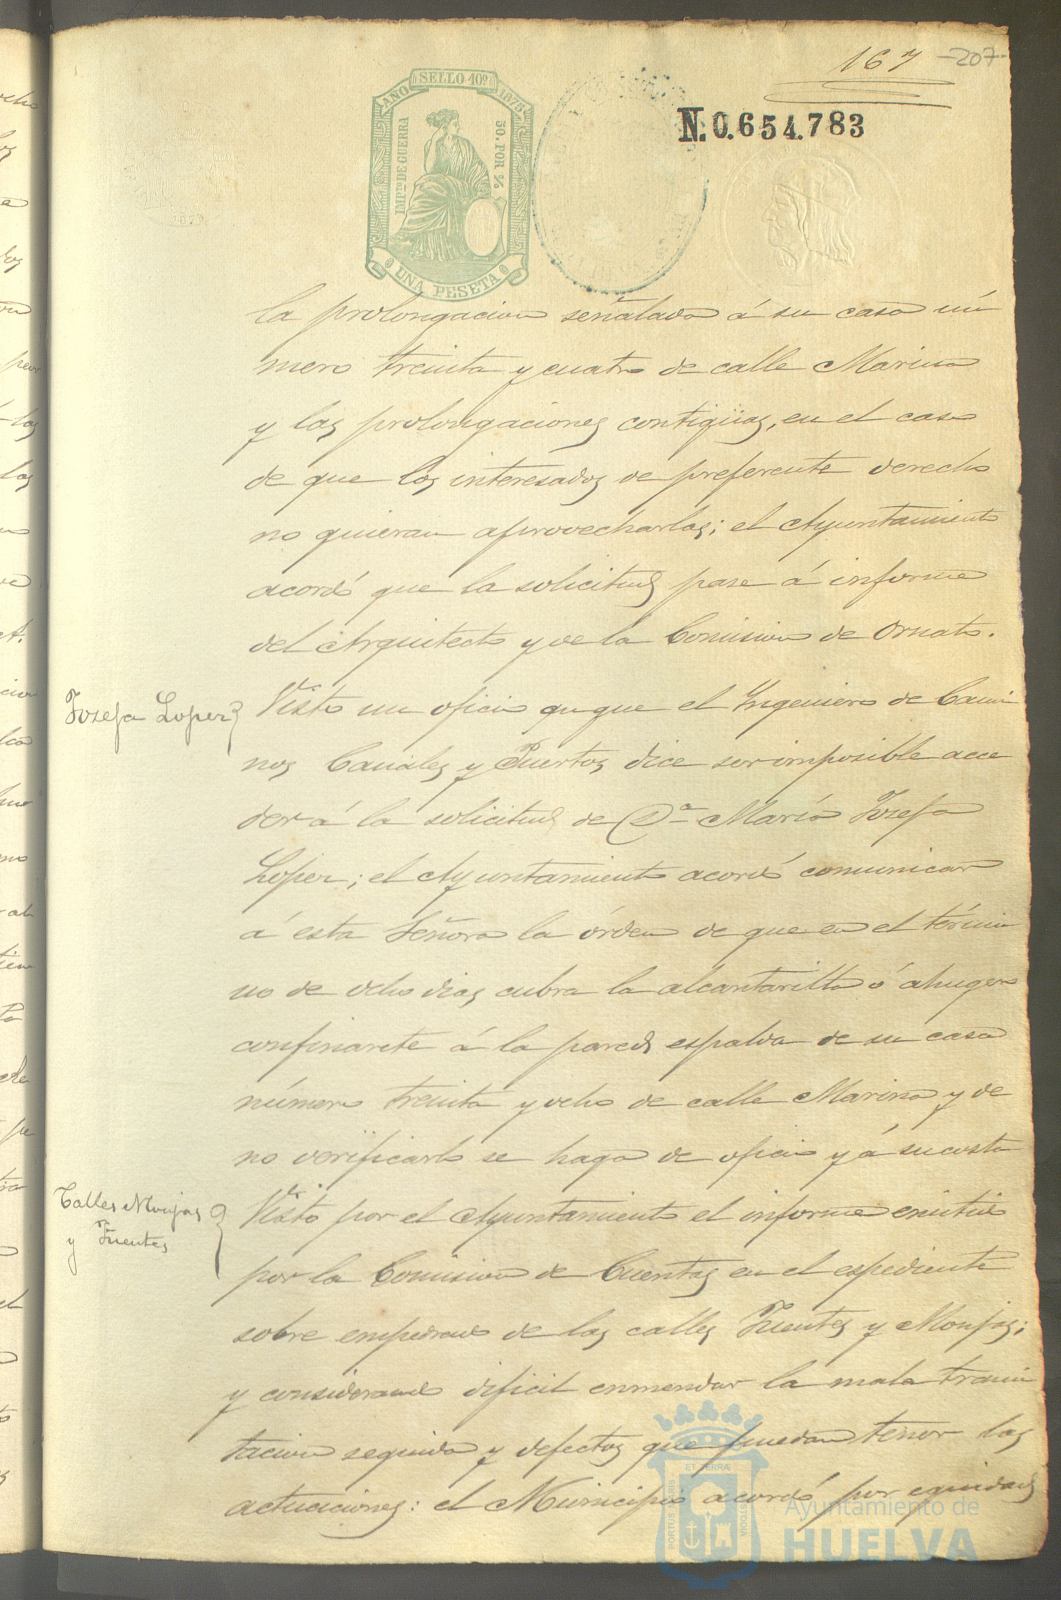 167 -207-
AÑO SELLO 10º 1875
IMPtO DE GUERRA
50. POR %
UNA PESETA
N.0.654.783
la prolongacion señalada á su casa nú
mero treinta y cuatro de calle Marina
y las prolongaciones contigüas, en el caso
de que los interesados de preferente derecho
no quieran aprovecharlas; el Ayuntamiento
acordó que la solicitud pase á informe
del Arquitecto y de la Comision de Ornato.
Josefa Lopez
Visto un oficio qu que el Ingeniero de Cami
nos Canales y Puertos dice ser imposible acce
der á la solicitud de Dª María Josefa
Lopez; el Ayuntamiento acordó comunicar
á esta Señora la órden de que en el térmi
no de ocho dias cubra la alcantarilla ó ahugero
confinante á la pared espalda de su casa
número treinta y ocho de calle Marina y de
no verificarlo se haga de oficio y á su costa
Calles Monjas
y Fuentes
Visto por el Ayuntamiento el informe emitido
por la Comision de Cuentas en el espediente
sobre empedrado de las calles Fuentes y Monjas;
y considerando dificil enmendar la mala trami
tacion seguida y defectos que puedan tener las
actuaciones: el Municipio acordó por equidad
PORTUS MARIS ET TERRÆ CUSTODIA
Ayuntamiento de
HUELVA